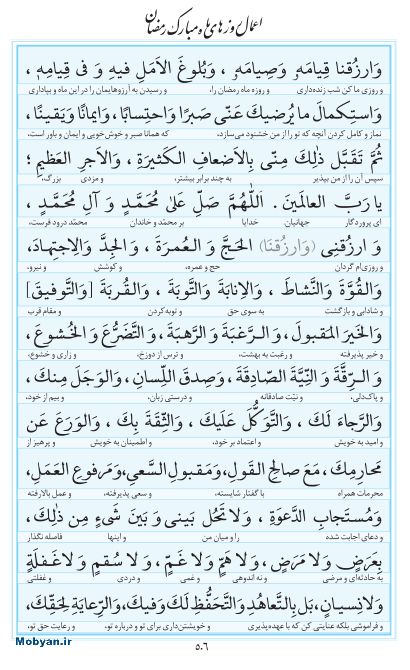 اعمال روزهای ماه مبارک رمضان
وَارزُقنا قِيامَهُ وَصِيامَهُ، وَبُلوغَ الاَمَلِ فيهِ وَ فى قِيامِهِ،
و روزی ما کن شب زنده‌داری و روزه ماه رمضان را، و رسیدن به آرزوهایمان را در این ماه و بپاداری
وَاستِكمالَ ما يُرضيكَ عَنّى صَبرًا وَاحتِسابًا، وَايمانًا وَيَقينًا،
نماز و کامل کردن آنچه که تو را از من خشنود می‌سازد، که همانا صبر و خوش‌خویی و ایمان و باور است،
ثُمَّ تَقَبَّل ذٰلِكَ مِنّى بِالاَضعافِ الكَثيرَةِ، وَالاَجرِ العَظيمِ؛
سپس آن را از من بپذیر به چند برابر بیشتر، و مزدی بزرگ،
يا رَبَّ العالَمينَ. اَللّٰهُمَّ صَلِّ عَلىٰ مُحَمَّدٍ وَ آلِ مُحَمَّدٍ،
ای پروردگار جهانیان. خدایا بر محمّد و خاندان محمّد درود فرست،
وَ ارزُقنِى (وَارزُقنَا) الحَجَّ وَ العُمرَةَ، وَ الجِدَّ وَالاِجتِهادَ،
و روزی‌ام گردان حج و عمره، و کوشش و نیرو،
وَالقُوَّةَ وَالنَّشاطَ، وَالاِنابَةَ وَالتَّوبَةَ، وَالقُربَةَ [وَالتَّوفيقَ]
و شادابی و بازگشت به سوی حق و توبه کردن و مقام قرب
وَالخَيرَ المَقبولَ، وَ الرَّغبَةَ وَالرَّهبَةَ، وَالتَّضَرُّعَ وَالخُشوعَ،
و خیر پذیرفته و رغبت به بهشت، و ترس از دوزخ، و زاری و خشوع،
وَ الرِّقَّةَ وَ النِّيَّةَ الصّادِقَةَ، وَصِدقَ اللِّسانِ، وَالوَجَلَ مِنكَ،
و پاک‌دلی، و نیّت صادقانه و درستی زبان، و بیم از خود،
وَالرَّجاءَ لَكَ، وَالتَّوَكُّلَ عَلَيكَ، وَالثِّقَةَ بِكَ، وَالوَرَعَ عَن
و امید به خویش و اعتماد بر خود، و اطمینان به خویش و پرهیز از
مَحارِمِكَ، مَعَ صالِحِ القَولِ، وَمَقبولِ السَّعىِ، وَمَرفوعِ العَمَلِ،
محرمات همراه با گفتار شایسته، و سعی پذیرفته، و عمل بالارفته
وَ مُستَجابِ الدَّعوَةِ، وَ لا تَحُل بَينى وَ بَينَ شَىءٍ مِن ذٰلِكَ،
و دعای اجابت شده و را و میان من و اینها فاصله نگذار
بِعَرَضٍ وَ لا مَرَضٍ، وَ لا هَمٍّ وَ لا غَمٍّ، وَ لا سُقمٍ وَ لا غَفلَةٍ
به حادثه‌ای و مرضی و نه اندوهی و غمی و دردی و غفلتی
وَ لا نِسيانٍ، بَل بِالتَّعاهُدِ وَالتَّحَفُّظِ لَكَ وَفيكَ، وَالرِّعايَةِ لِحَقِّكَ،
و فراموشی بلکه عنایتی کن که با عهده‌پذیری و خویشتن‌داری برای تو و درباره تو، و رعایت حق تو،
Mobyan.ir
۵۰۶